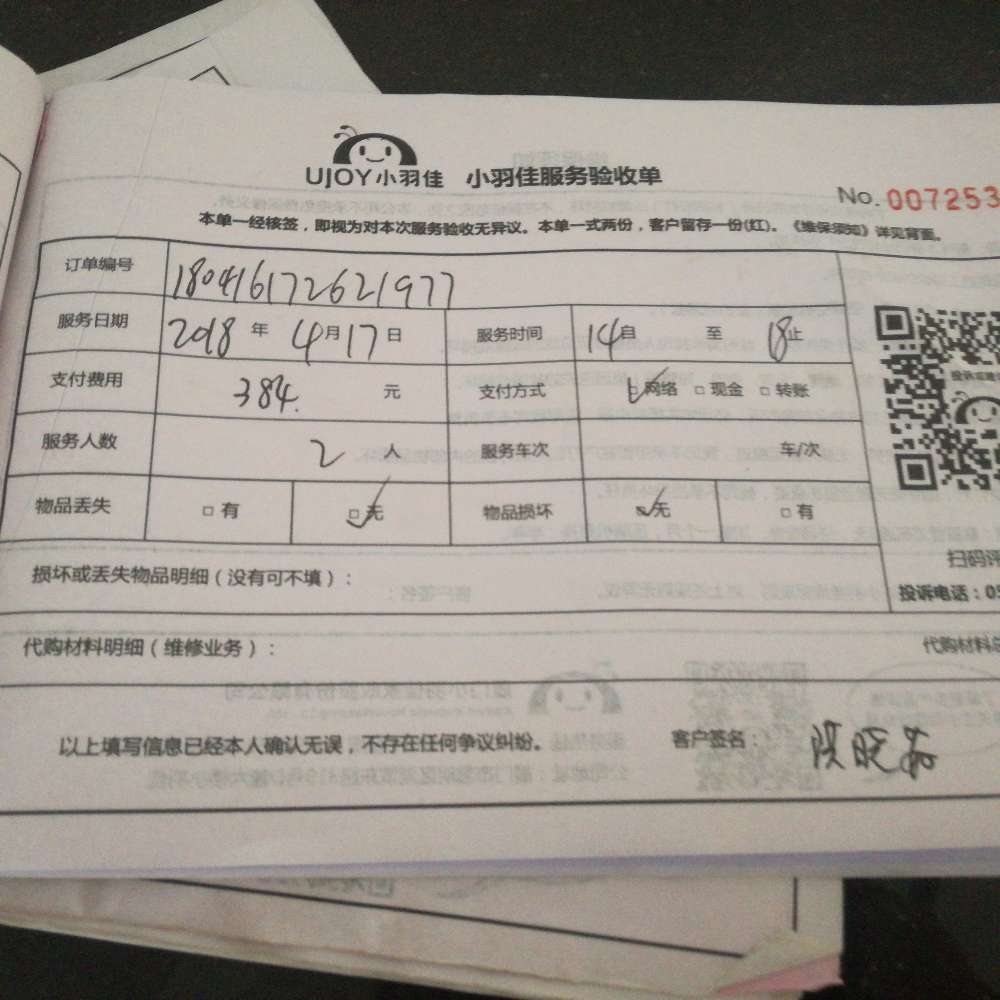 UJOY小羽佳 小羽佳服务验收单
No. 007253
本单一经核签，即视为对本次服务验收无异议。本单一式两份，客户留存一份(红)。《维保须知》详见背面。
订单编号 180416172621977
服务日期 2018 年 4月17日 服务时间 14自 至 18止
支付费用 384. 元 支付方式 □网络 □现金 □转账
服务人数 2 人 服务车次 车/次
物品丢失 □有 □无 物品损坏 □无 □有
扫码评
损坏或丢失物品明细（没有可不填）：
投诉电话：05
代购材料明细（维修业务）： 代购材料总
以上填写信息已经本人确认无误，不存在任何争议纠纷。 客户签名：